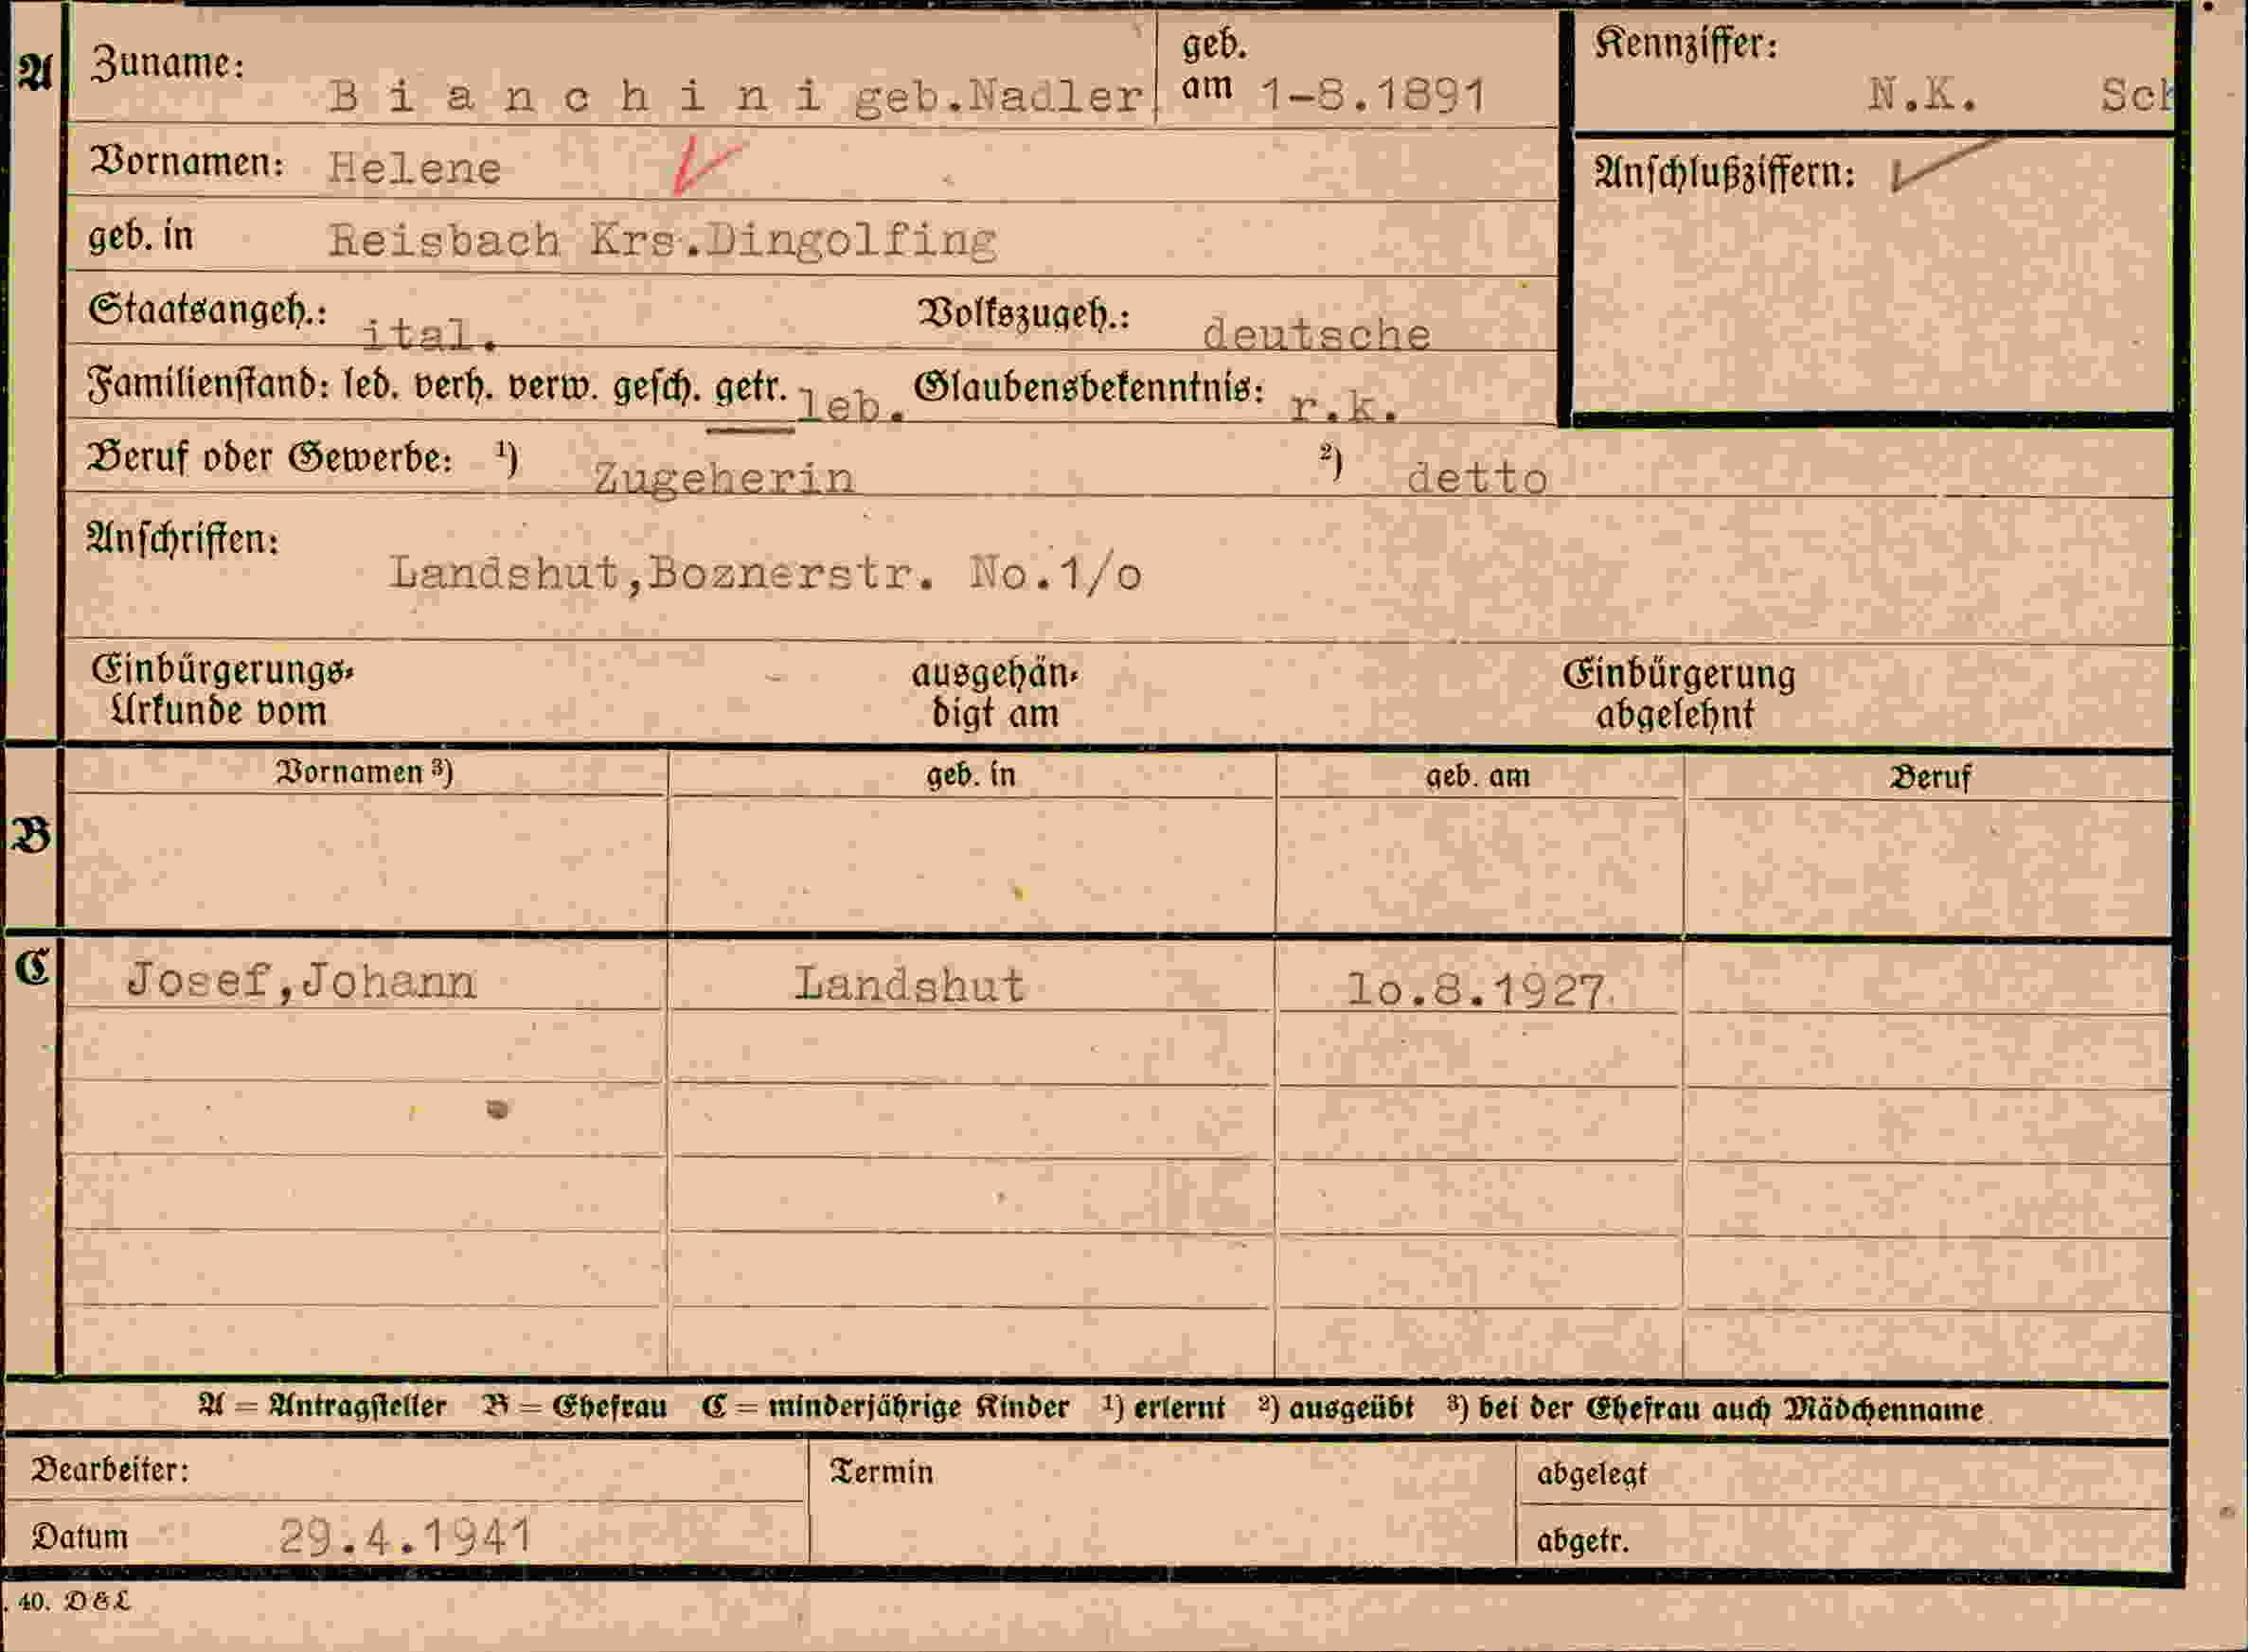 A
Zuname: B i a n c h i n i geb.Nadler geb. am 1-8.1891
Kennziffer: N.K. Sch
Vornamen: Helene
Anschlußziffern:
geb. in Reisbach Krs.Dingolfing
Staatsangeh.: ital. Volkszugeh.: deutsche
Familienstand: led. verh. verw. gesch. getr. leb. Glaubensbekenntnis: r.k.
Beruf oder Gewerbe: ¹) Zugeherin ²) detto
Anschriften:
Landshut,Boznerstr. No.1/o
Einbürgerungs- ausgehän- Einbürgerung
Urkunde vom digt am abgelehnt
Vornamen ³) geb. in geb. am Beruf
B
C Josef,Johann Landshut lo.8.1927.
A = Antragsteller B = Ehefrau C = minderjährige Kinder ¹) erlernt ²) ausgeübt ³) bei der Ehefrau auch Mädchenname
Bearbeiter: Termin abgelegt
Datum 29.4.1941 abgetr.
. 40. D & L